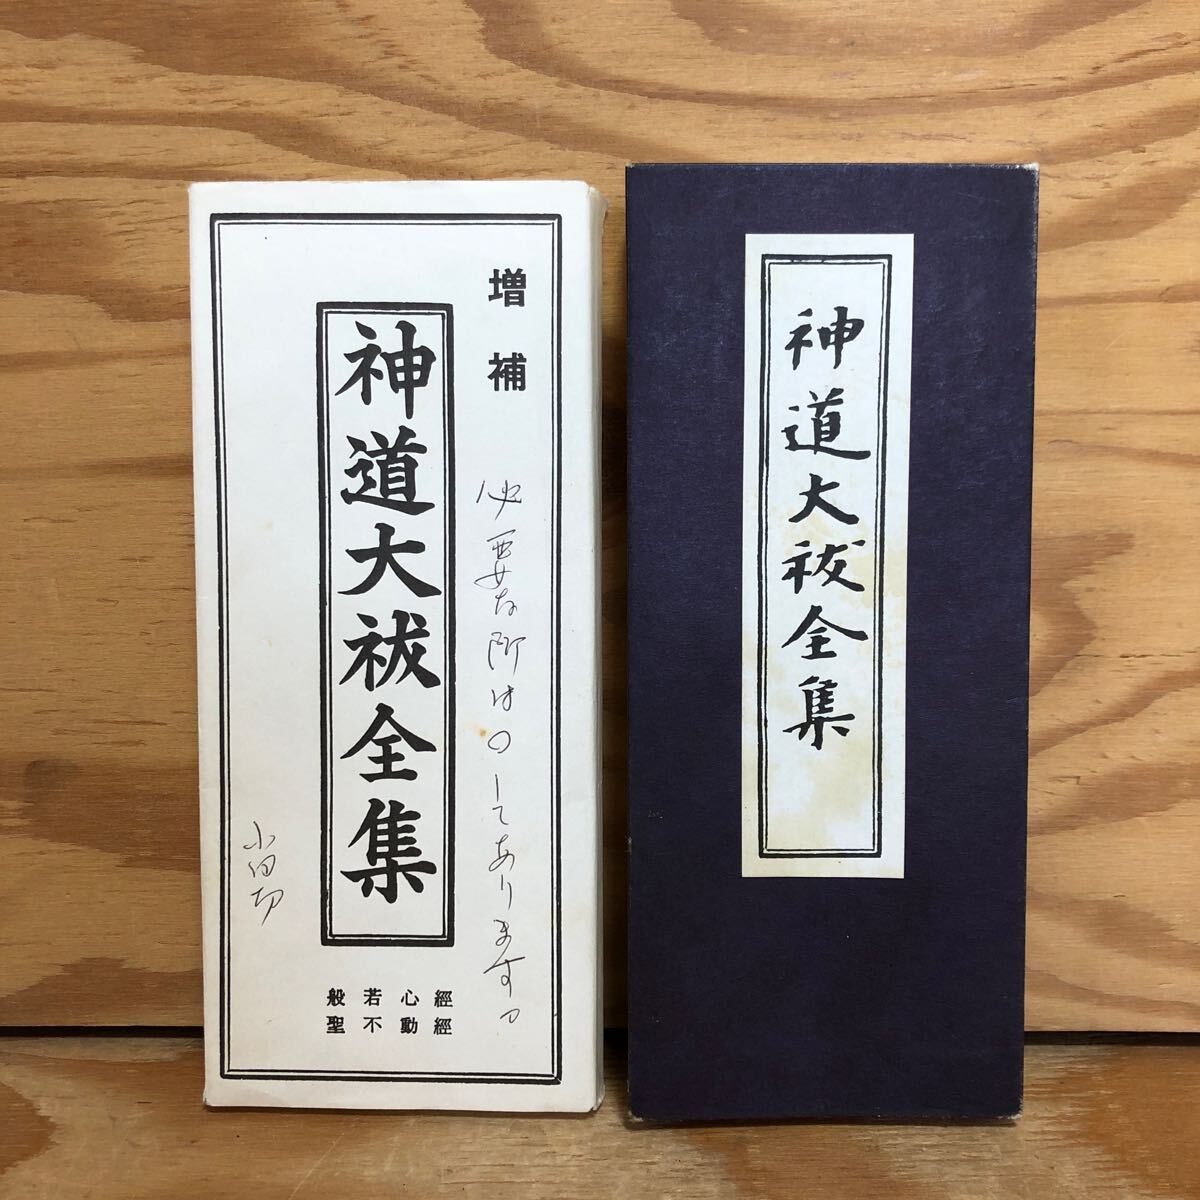 増補
神道大祓全集
必要な所はのしてあります
小田切
般若心經
聖不動經
神道大祓全集